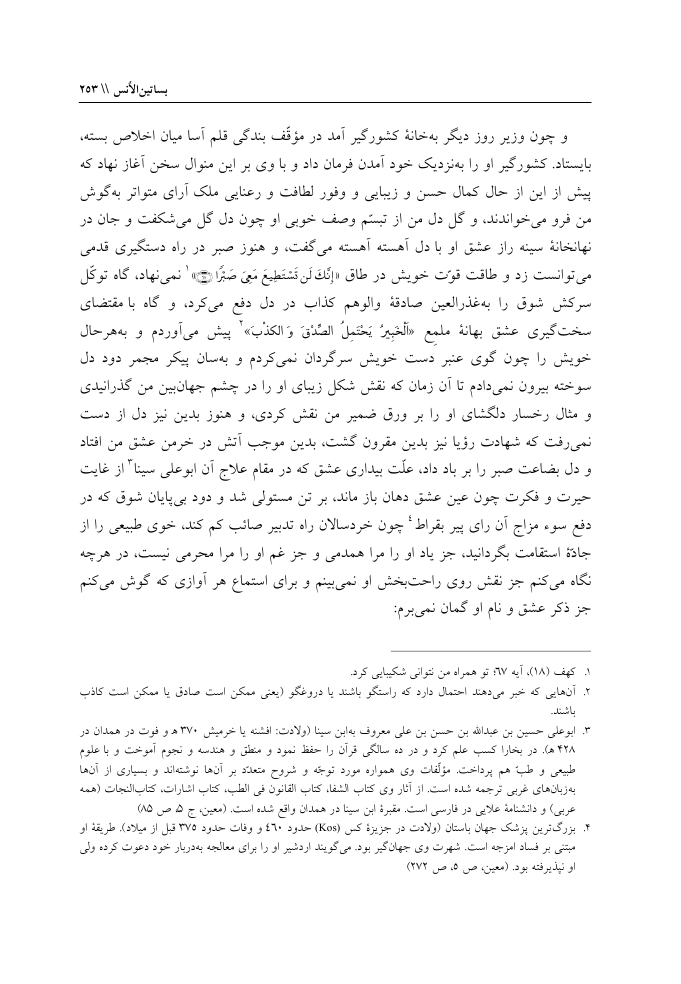 بساتین‌الأنس \\ ۲۵۳
و چون وزیر روز دیگر به‌خانهٔ کشورگیر آمد در مؤقّف بندگی قلم آسا میان اخلاص بسته،
بایستاد. کشورگیر او را به‌نزدیک خود آمدن فرمان داد و با وی بر این منوال سخن آغاز نهاد که
پیش از این از حال کمال حسن و زیبایی و وفور لطافت و رعنایی ملک آرای متواتر به‌گوش
من فرو می‌خواندند، و گل دل من از تبسّم وصف خوبی او چون دل گل می‌شکفت و جان در
نهانخانهٔ سینه راز عشق او با دل آهسته آهسته می‌گفت، و هنوز صبر در راه دستگیری قدمی
می‌توانست زد و طاقت قوّت خویش در طاق «إِنَّكَ لَن تَسْتَطِيعَ مَعِيَ صَبْرًا ۝»۱ نمی‌نهاد، گاه توکّل
سرکش شوق را به‌غذرالعین صادقهٔ والوهم کذاب در دل دفع می‌کرد، و گاه با مقتضای
سخت‌گیری عشق بهانهٔ ملمع «اَلْخَبِيرُ يَحْتَمِلُ الصِّدْقَ وَ الكذْبَ»۲ پیش می‌آوردم و به‌هرحال
خویش را چون گوی عنبر دست خویش سرگردان نمی‌کردم و به‌سان پیکر مجمر دود دل
سوخته بیرون نمی‌دادم تا آن زمان که نقش شکل زیبای او را در چشم جهان‌بین من گذرانیدی
و مثال رخسار دلگشای او را بر ورق ضمیر من نقش کردی، و هنوز بدین نیز دل از دست
نمی‌رفت که شهادت رؤیا نیز بدین مقرون گشت، بدین موجب آتش در خرمن عشق من افتاد
و دل بضاعت صبر را بر باد داد، علّت بیداری عشق که در مقام علاج آن ابوعلی سینا۳ از غایت
حیرت و فکرت چون عین عشق دهان باز ماند، بر تن مستولی شد و دود بی‌پایان شوق که در
دفع سوء مزاج آن رای پیر بقراط۴ چون خردسالان راه تدبیر صائب کم کند، خوی طبیعی را از
جادّهٔ استقامت بگردانید، جز یاد او را مرا همدمی و جز غم او را مرا محرمی نیست، در هرچه
نگاه می‌کنم جز نقش روی راحت‌بخش او نمی‌بینم و برای استماع هر آوازی که گوش می‌کنم
جز ذکر عشق و نام او گمان نمی‌برم:
۱. کهف (۱۸)، آیه ۶۷؛ تو همراه من نتوانی شکیبایی کرد.
۲. آن‌هایی که خبر می‌دهند احتمال دارد که راستگو باشند یا دروغگو (یعنی ممکن است صادق یا ممکن است کاذب
باشند.
۳. ابوعلی حسین بن عبدالله بن حسن بن علی معروف به‌ابن سینا (ولادت: افشنه یا خرمیش ۳۷۰ ه‍ و فوت در همدان در
۴۲۸ ه‍). در بخارا کسب علم کرد و در ده سالگی قرآن را حفظ نمود و منطق و هندسه و نجوم آموخت و با علوم
طبیعی و طبّ هم پرداخت. مؤلّفات وی همواره مورد توجّه و شروح متعدّد بر آن‌ها نوشته‌اند و بسیاری از آن‌ها
به‌زبان‌های غربی ترجمه شده است. از آثار وی کتاب الشفا، کتاب القانون فی الطب، کتاب اشارات، کتاب‌النجات (همه
عربی) و دانشنامهٔ علایی در فارسی است. مقبرهٔ ابن سینا در همدان واقع شده است. (معین، ج ۵، ص ۸۵)
۴. بزرگ‌ترین پزشک جهان باستان (ولادت در جزیرهٔ کس (Kos) حدود ۴۶۰ و وفات حدود ۳۷۵ قبل از میلاد). طریقهٔ او
مبتنی بر فساد امزجه است. شهرت وی جهان‌گیر بود. می‌گویند اردشیر او را برای معالجه به‌دربار خود دعوت کرده ولی
او نپذیرفته بود. (معین، ص ۵، ص ۲۷۲)